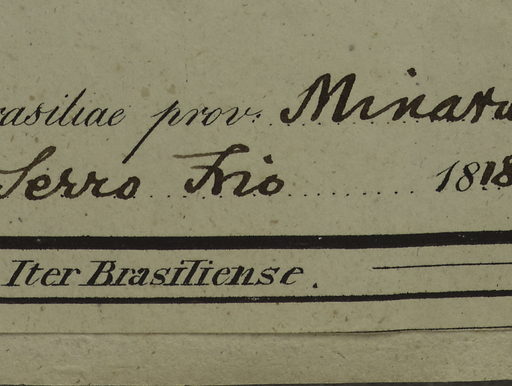 rasiliae prov. Minaru
Serro Frio 1818
Iter Brasiliense.